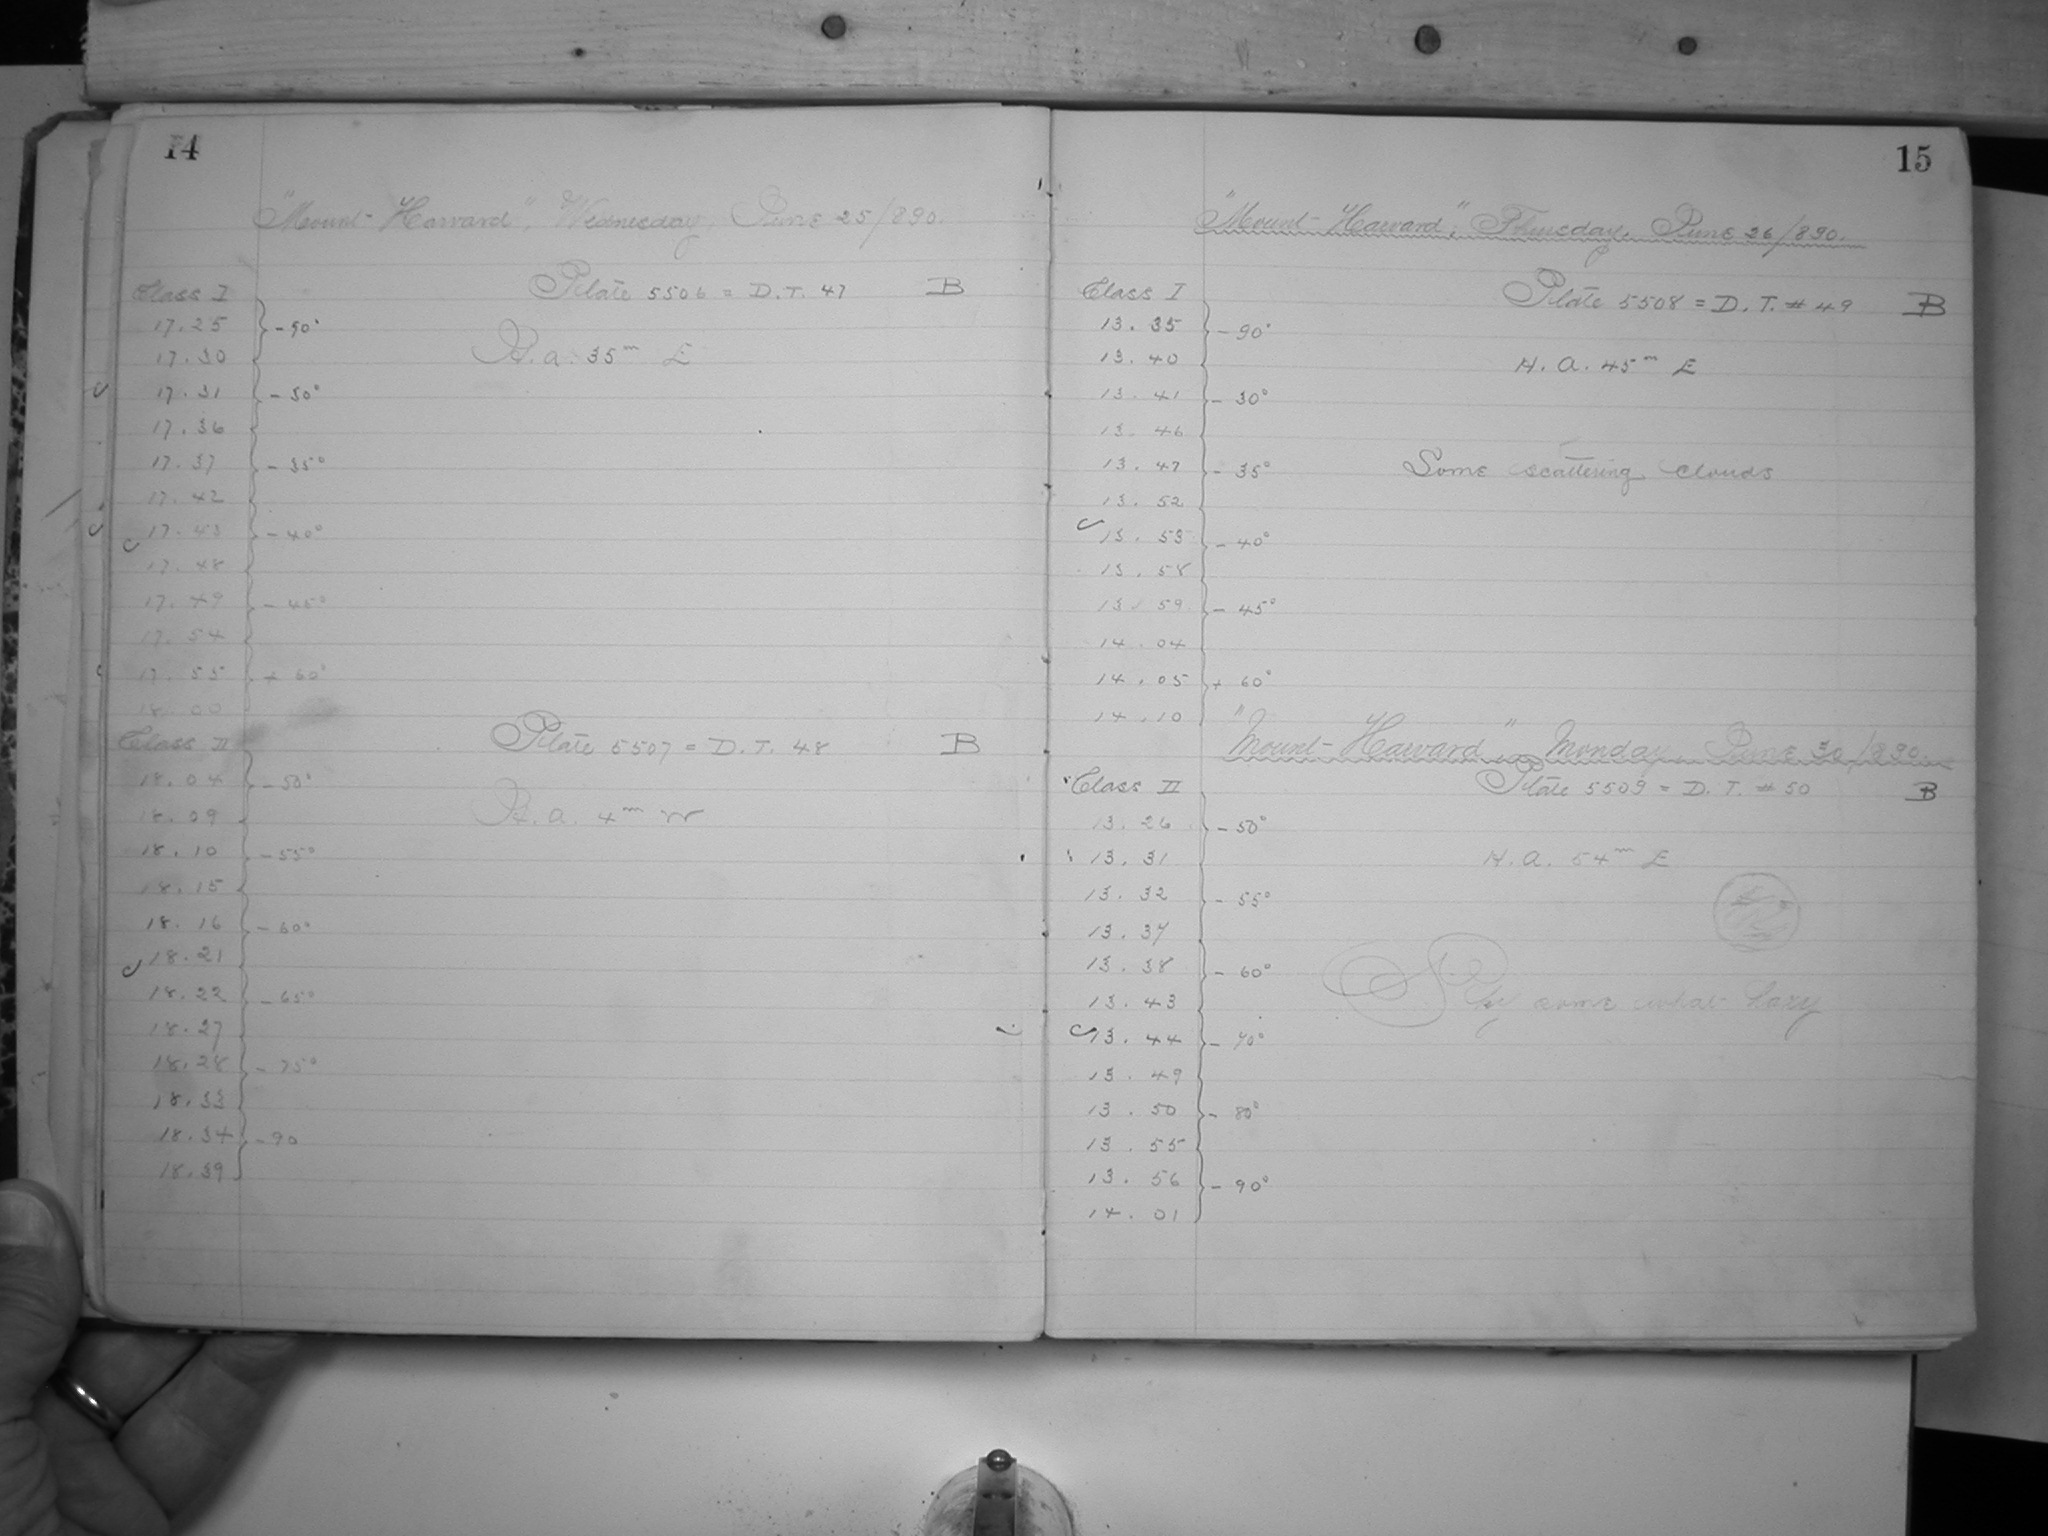 14
"Mount-Harvard", Wednesday, June 25/890.
Class I Plate 5506 = D.T. 47 B
17.25 -90°
17.30 H.a. 35m E
17.31 -30°
17.36
17.37 -35°
17.42
17.43 -40°
17.48
17.49 -45°
17.54
17.55 + 60°
18.00
Class II Plate 5507 = D.T. 48 B
18.04 -50°
18.09 H.a. 4m W
18.10 -55°
18.15
18.16 -60°
18.21
18.22 -65°
18.27
18.28 -75°
18.33
18.34 -90
18.39
15
"Mount-Harvard," Thursday, June 26/890.
Class I Plate 5508 = D.T. # 49 B
13.35 -90°
13.40 H.a. 45m E
13.41 -30°
13.46
13.47 -35° Some scattering clouds
13.52
13.53 -40°
13.58
13.59 -45°
14.04
14.05 + 60°
14.10
"Mount-Harvard", Monday, June 30/890.
Class II Plate 5509 = D.T. # 50 B
13.26 -50°
13.31 H.a. 54m E
13.32 -55°
13.37
13.38 -60°
13.43 Sky some what hazy
13.44 -70°
13.49
13.50 -80°
13.55
13.56 -90°
14.01